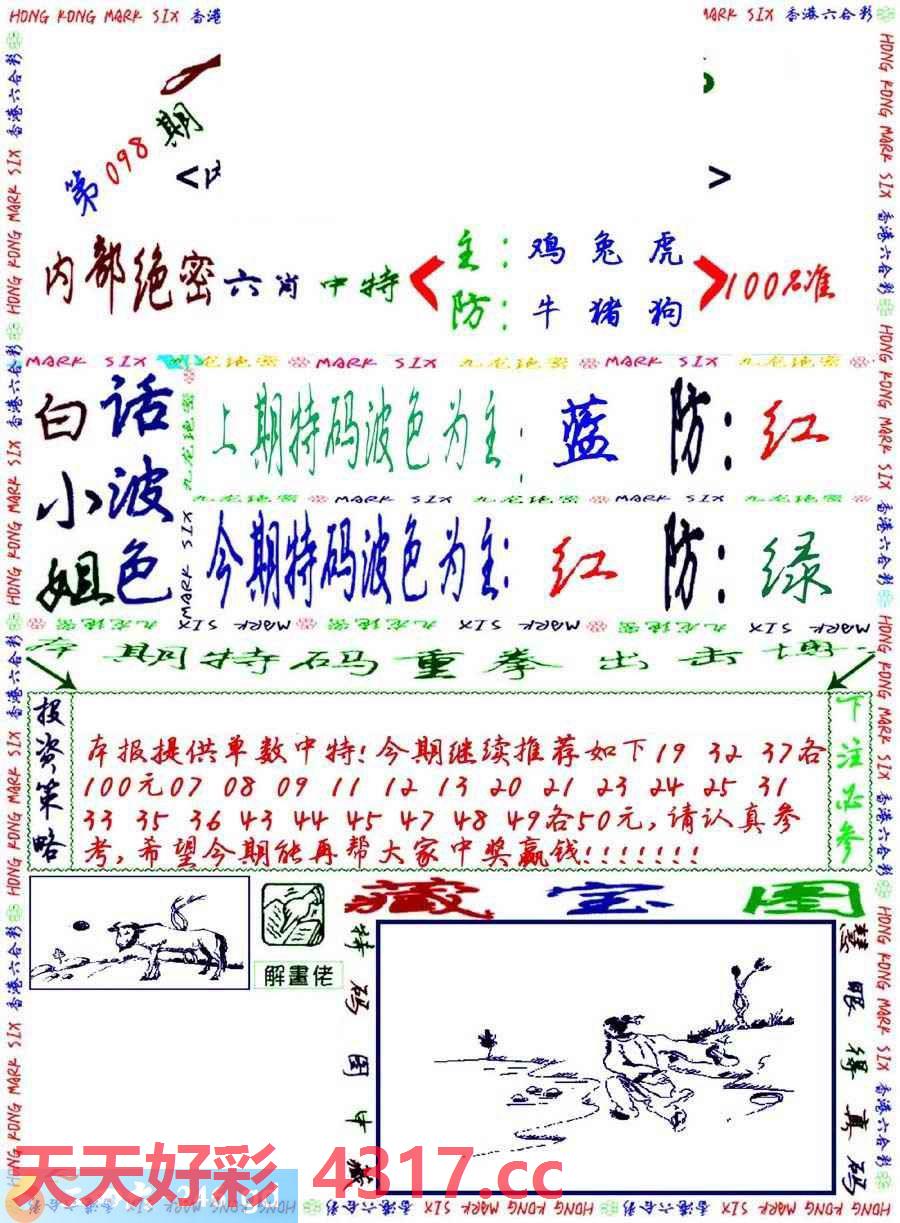 HONG KONG MARK SIX 香港
MARK SIX 香港六合彩
第098期
内部绝密六肖中特
主：鸡兔虎
防：牛猪狗
100%准
MARK SIX 九龙绝密 MARK SIX 九龙绝密 MARK SIX 九龙绝密
白小姐
话波色
上期特码波色为主：蓝 防：红
九龙绝密 MARK SIX 九龙绝密 MARK SIX 九龙绝密
今期特码波色为主：红 防：绿
九龙绝密 MARK SIX MARK SIX 九龙绝密 MARK SIX 九龙绝密 MARK SIX
本期特码重拳出击
投资策略
本报提供单数中特!今期继续推荐如下19 32 37各
100元07 08 09 11 12 13 20 21 23 24 25 31
33 35 36 43 44 45 47 48 49各50元,请认真参
考,希望今期能再帮大家中奖赢钱!!!!!!!
下注必参
藏宝图
解畫佬
特码图中藏
慧眼得真码
天天好彩 4317.cc
HONG KONG MARK SIX 香港六合彩